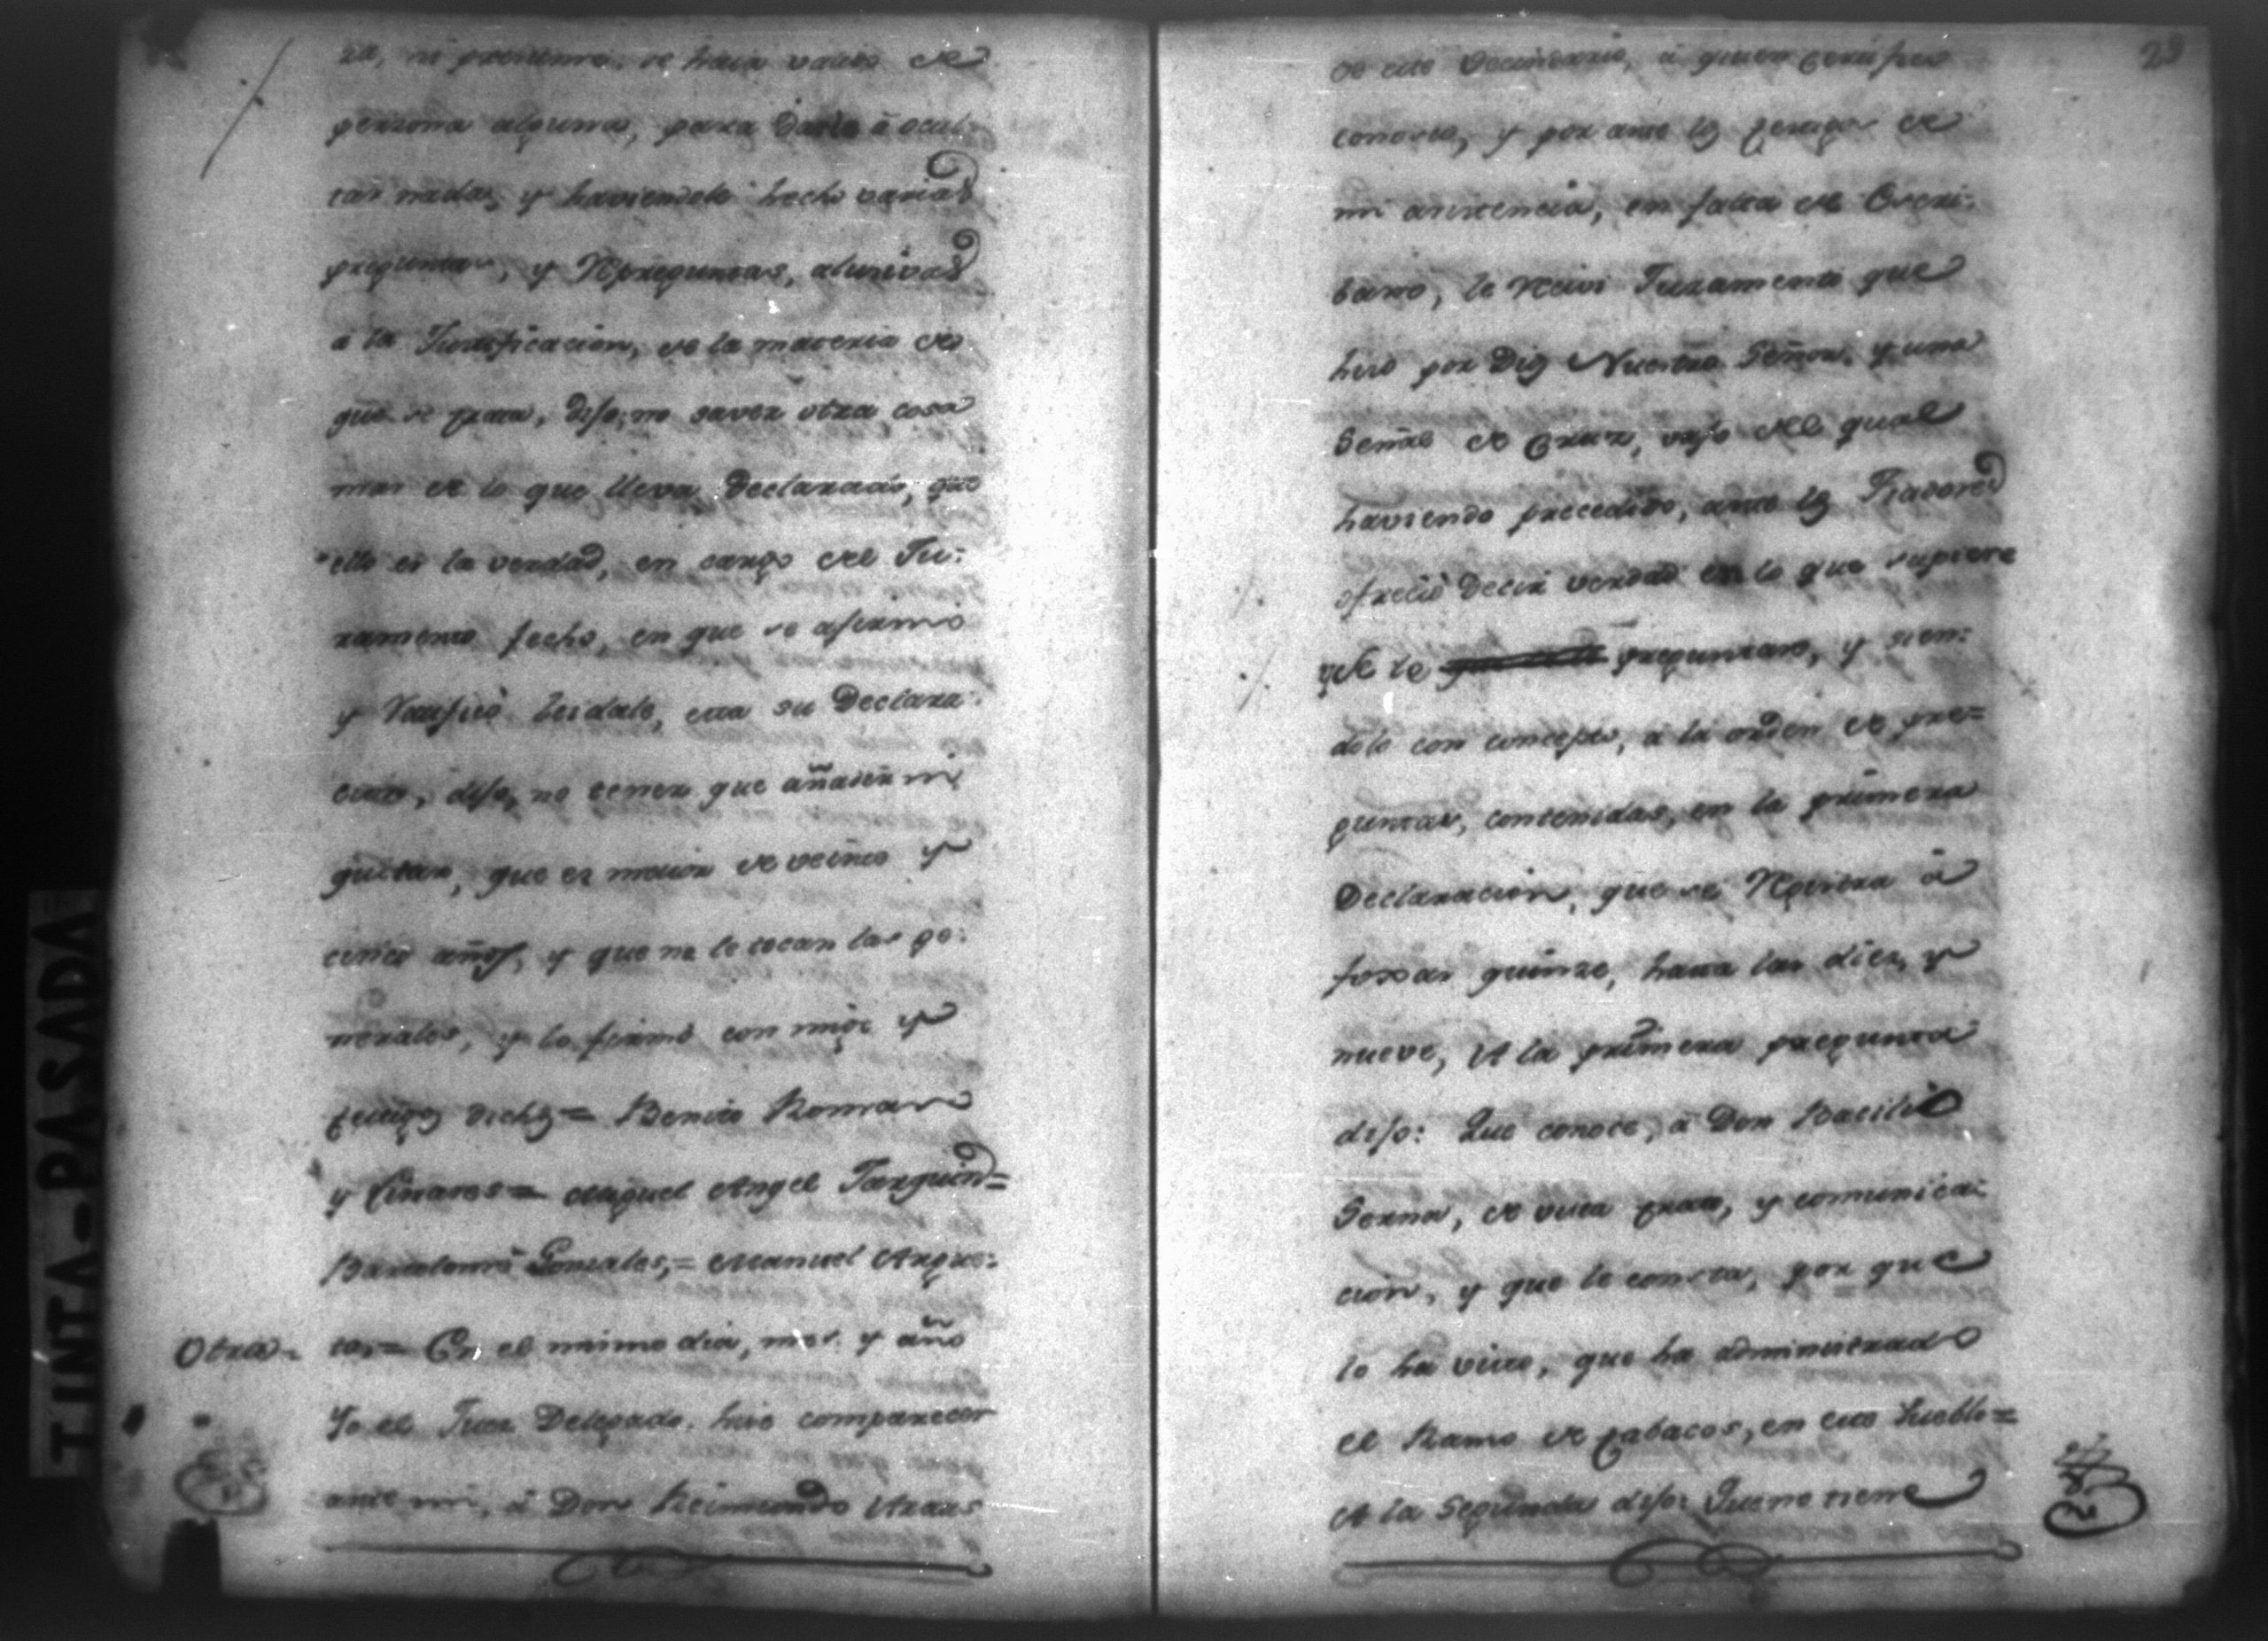 za, ni  se havia valido de
persona alguna, para darle à ocul-
tar nada, y haviendole hecho varias
preguntas, y Repreguntas, alusivas
a la Justificacion, de la materia de
que se trata, dijo, no saver otra cosa
mas de lo que lleva Declarado, que
ello es la verdad, en cargo del Ju:
ramento fecho, en que se afirmò
y Ratificò leidale, esta su Declara-
cion, dijo, no tener que añadir ni
quitar, que es maior de veinte y
cinco años, y que no le tocan las ge:
nerales, y lo firmò con migo y
testigos dichos = Benito Roman
y Linares = Miguel Angel Targuin =
Bartolomè Gonzales, = Manuel Argue:
Otra- tas = En el mismo dia, mes y año
Yo el Juez Delegado, hice comparecer
ante mi, à Don Reimundo Araus
23
de este Vecindario, à quien certifico
conosco, y por ante los testigos de
mi asistencia, en falta de Escri-
bano, le recivi Juramento que
hizo por Dios Nuestro Señor, y una
Señal de Cruz, vajo del qual
haviendo precedido, ante los Fiadores
ofreciò Decir verdad en lo que supiere
qe le preguntado, y sien:
dolo con concepto, à la orden de pre=
guntas, contenidas, en la primera
Declaracion, que se Registra à
foxas quinze, hasta las diez, y
nueve, A la primera pregunta
dijo: Que conoce, à Don Bacilio
Serna, de vista trato, y comunica:
cion, y que le consta, por que
lo ha visto, que ha administrado
el Ramo de tabacos, en este Pueblo =
A la Segunda dijo: Que no tiene
TINTA-PASADA